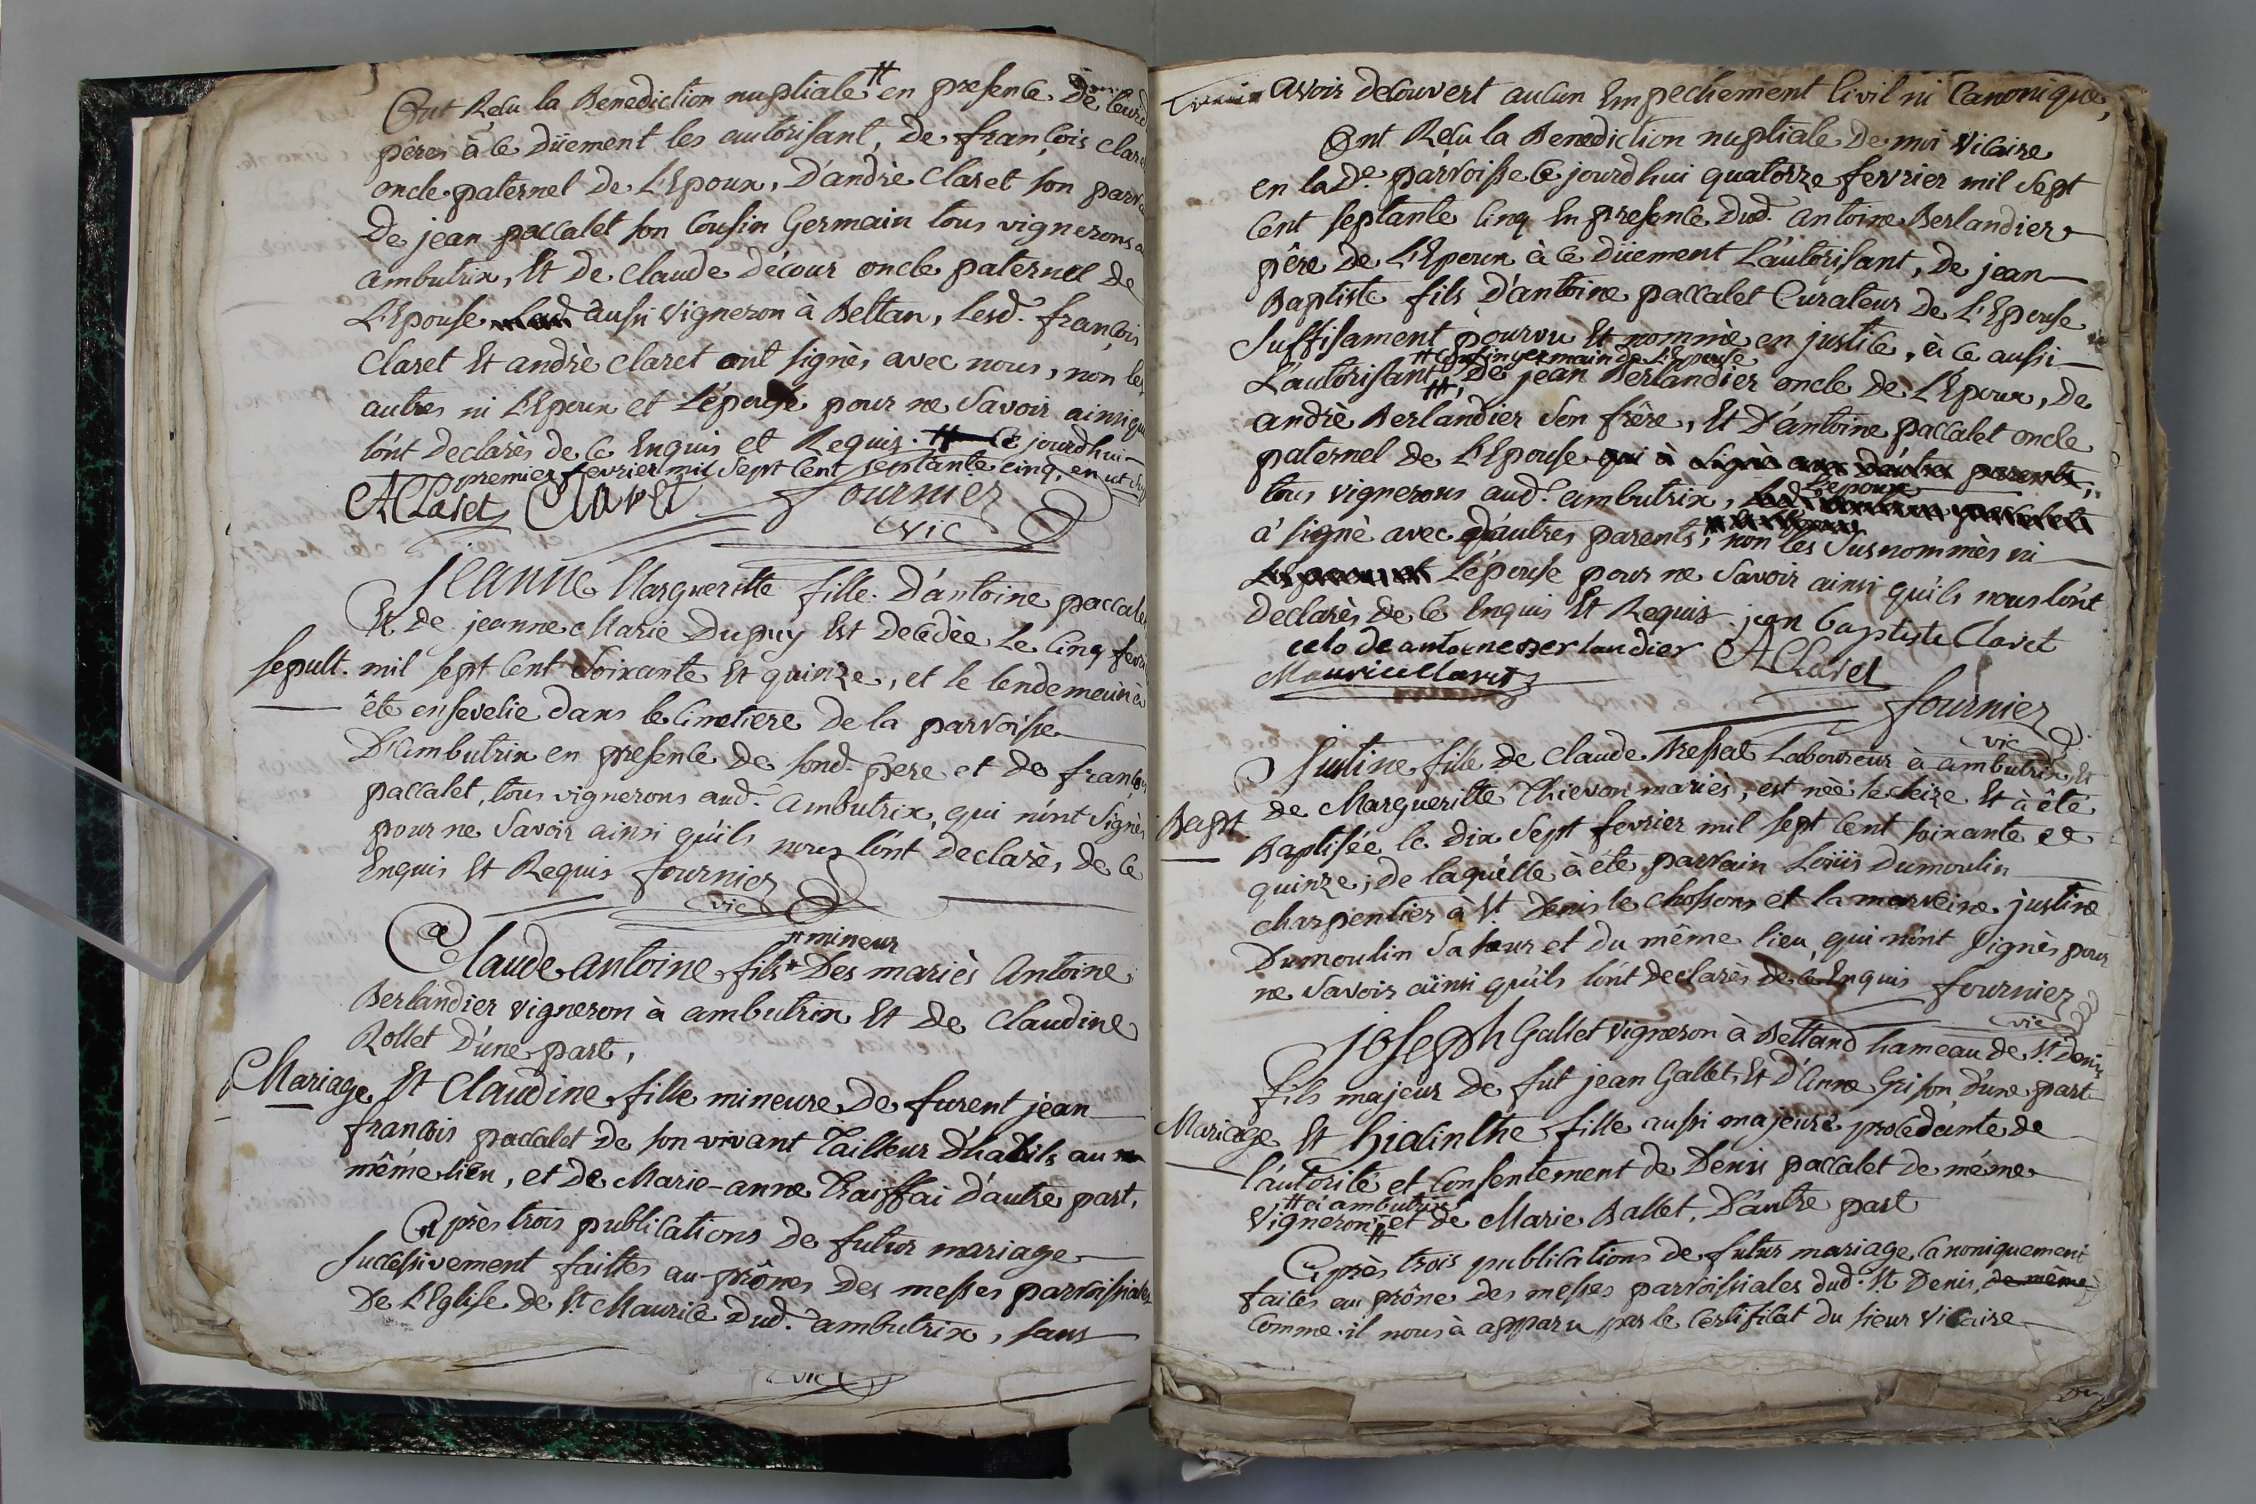 Ont Reçu la Benediction nuptiale # en presence De leurs
pères à ce düement les autorisant, de françois claret
oncle paternel de L'Epoux, D'andrè Claret son
De jean paccalet son Cousin Germain tous vignerons
ambutrix, Et de claude Décour oncle paternel de
L'Epouse aussi Vigneron à Bettan, lesd. françois
Claret Et andrè claret ont signès avec nous, non les
autres ni L'Epoux et L'épouse pour ne Savoir ainsi que
l'ont declarès de ce Enquis et Requis. # Ce jourdhui
premier fevrier mil Sept Cent septante cinq, en
AClaret Claret fournier
vic
Jeanne Margueritte fille D'antoine paccalet
Et de jeanne Marie Dupuy Est decèdèe Le Cinq fevrier
sepult. mil sept Cent Soixante Et quinze, et le lendemain à
étè ensevelie dans le Cimetiere de la parroisse
D'ambutrix en presence de sond. pere et de françois
paccalet, tous vignerons aud. ambutrix, qui n'ont Signès
pour ne Savoir ainsi qu'ils nous l'ont Declarès, de ce
Enquis Et Requis fournier
vic
# mineur
Claude antoine fils # Des mariès Antoine
Berlandier vigneron à ambutrix Et de Claudine
Rollet D'une part,
Mariage Et Claudine fille mineure De furent jean
francois paccalet de son vivant Tailleur D'habits au
même lieu, et de Marie-anne Trauffai d'autre part,
Après trois publications de futur mariage
Successivement faittes au prônes Des messes parroissiales
De L'Eglise de St. Maurice Dud. ambutrix, sans
vic
avoir decouvert aucun Empechement Civil ni Canonique,
Ont Reçu la Benediction nuptiale De moi Vicaire
en lade. parroisse Ce jourdhui quatorze fevrier mil Sept
Cent septante Cinq En presence Dud. Antoine Berlandier
père de L'Epoux à ce düement L'autorisant, de jean
Baptiste fils D'antoine paccalet Curateur de L'Epouse
Suffisament pourvu Et nommè en justice, à ce aussi
# Cousin germain de L'Epouse
L'autorisant #, De jean Berlandier oncle de L'Epoux, de
andrè Berlandier Son frère, Et D'antoine paccalet oncle
paternel de L'Epouse qui à Signè avec D'autres parents,
L'epoux
tous vignerons aud. ambutrix,
à signè avec d'autres parents, non les Susnommès ni
L'épouse pour ne Savoir ainsi qu'ils nous l'ont
declarès de ce Enquis Et Requis jean baptiste Claret
clo de antoine Berlandier AClaret
Maurice Claret
fournier
vic
Justine fille de Claude Tressat Laboureur à ambutrix, Et
de Margueritte Thievon mariès, est nèe le seize Et à étè
Bapt Baptisée le dix Sept fevrier mil sept Cent soixante et
quinze; de laquelle à éte parrain Loüis Dumoulin
charpentier à St. Denis le chosson et la marreine justine
Dumoulin Sa soeur et du même lieu, qui n'ont Signès pour
ne Savoir aïnsi qu'ils l'ont declarès de ce Enquis fournier
vic
Joseph Gallet vigneron à Bettand hameau de St. Denis
fils majeur de fut jean Gallet, Et D'anne Grison, D'une part
Mariage Et hiacinthe fille aussi majeure procedante de
l'autorité et Consentement de Denis paccalet de même
# à ambutrix
Vigneron # et de Marie Ballet, D'autre part
Après trois publications de futur mariage Canoniquement
faites au prône Des messes parroissiales dud. St. Denis, de même
Comme il nous à apparu par le Certificat Du sieur Vicaire